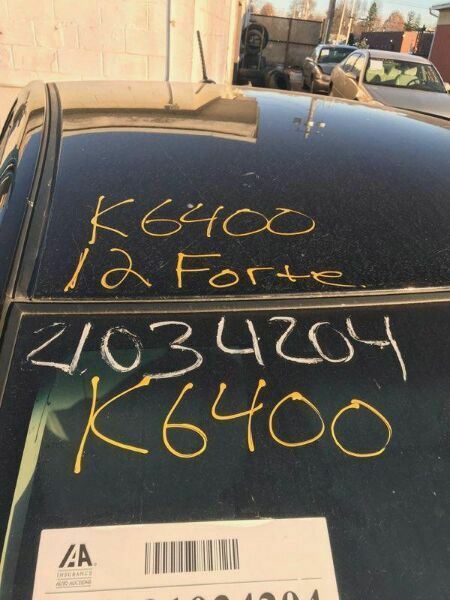 K6400
12 Forte
21034204
K6400
IAA
INSURANCE
AUTO AUCTIONS